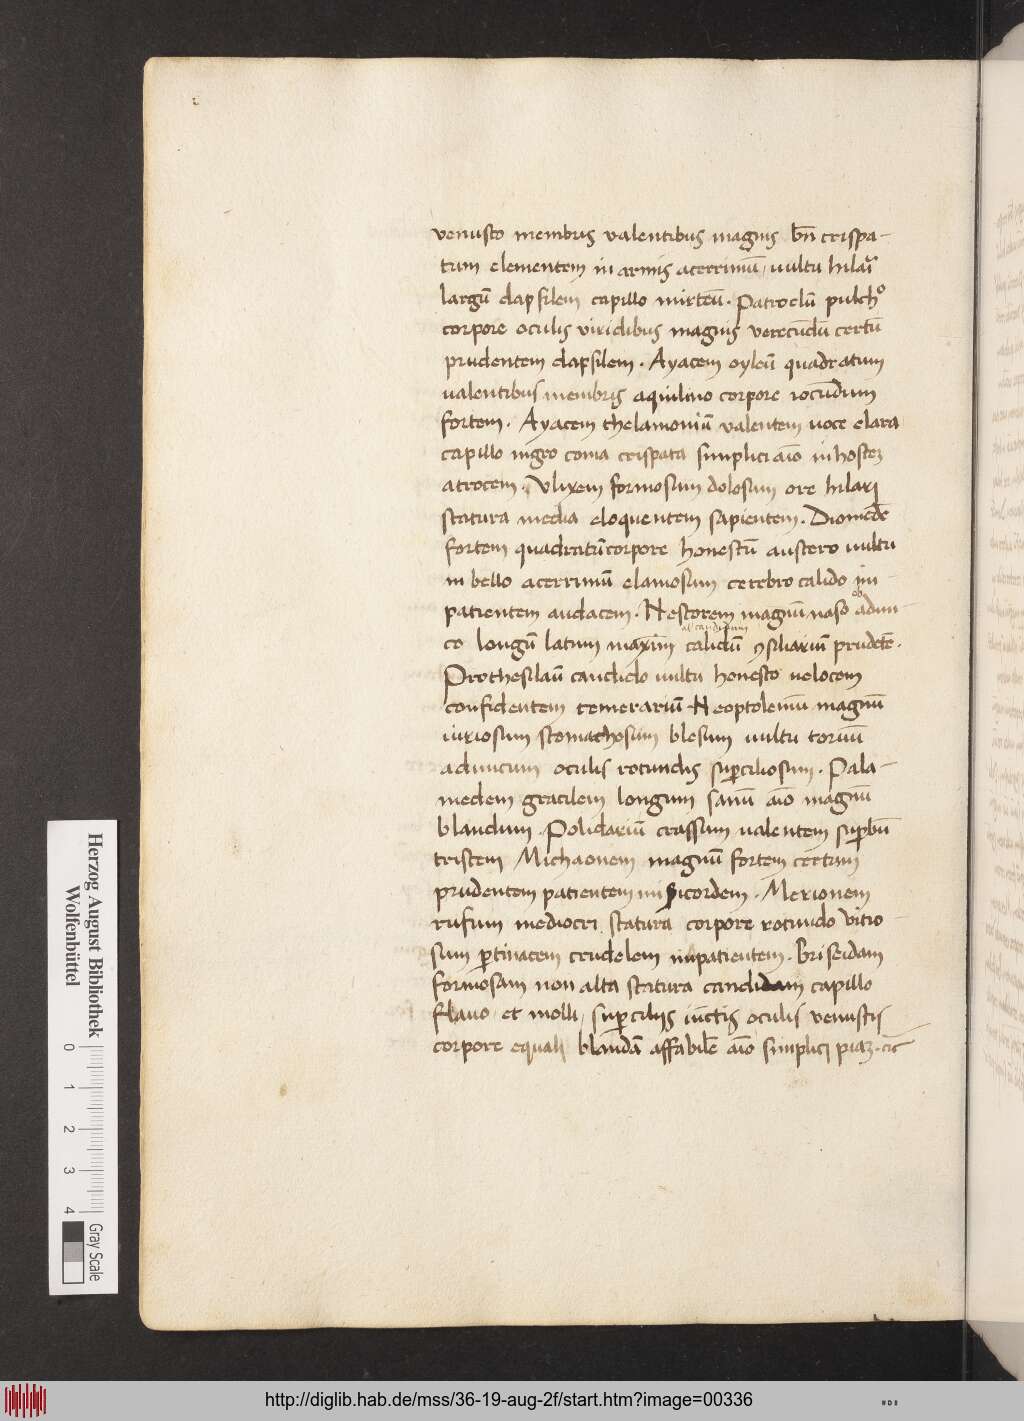 venusto membris valentibus magnis bn̄ crispa-
tum clementem in armis acerrimū vultu hilarī
largū dapsilem capillo mirteū. Patroclū pulchº
corpore oculis viridibus magnis verecūdū certū
prudentem dapsilem. Ayacem oyleū quadratum
valentibus membris aquilino corpore iocūdum
fortem. Ayacem thelamoniū valentem voce clara
capillo nigro coma crispata simplici aīo in hostez
atrocem. Vlixem formosum dolosum ore hilari
statura media eloquentem sapientem. Diomedē
fortem quadratū corpore honestū austero vultu
in bello acerrimū clamosum cerebro calido im-
patientem audacem. Nestorem magnū naso adun-
al' candidum
co longū latum maxīm calidū ꝯsiliariū prudētē.
Prothesilaū candido vultu honesto velocem
confidentem temerariū Neoptolemū magnū
viriosum stomachosum blesum vultu toruū
aduncum oculis rotundis suꝑciliosum. Pala-
medem gracilem longum sanū aīo magnū
blandum. Polidariū crassum valentem suꝑbū
tristem Michaonem magnū fortem certum
prudentem patientem misicordem. Merionem
rufum mediocri statura corpore rotundo vitio
sum ꝑtinacem crudelem inpatientem. Briseidam
formosam non alta statura candidam capillo
flauo et molli, suꝑciliis iūctis oculis venustis
corpore equali blandā affabilē aīo simplici piaz.
Herzog August Bibliothek
Wolfenbüttel
0 1 2 3 4
Gray Scale
http://diglib.hab.de/mss/36-19-aug-2f/start.htm?image=00336